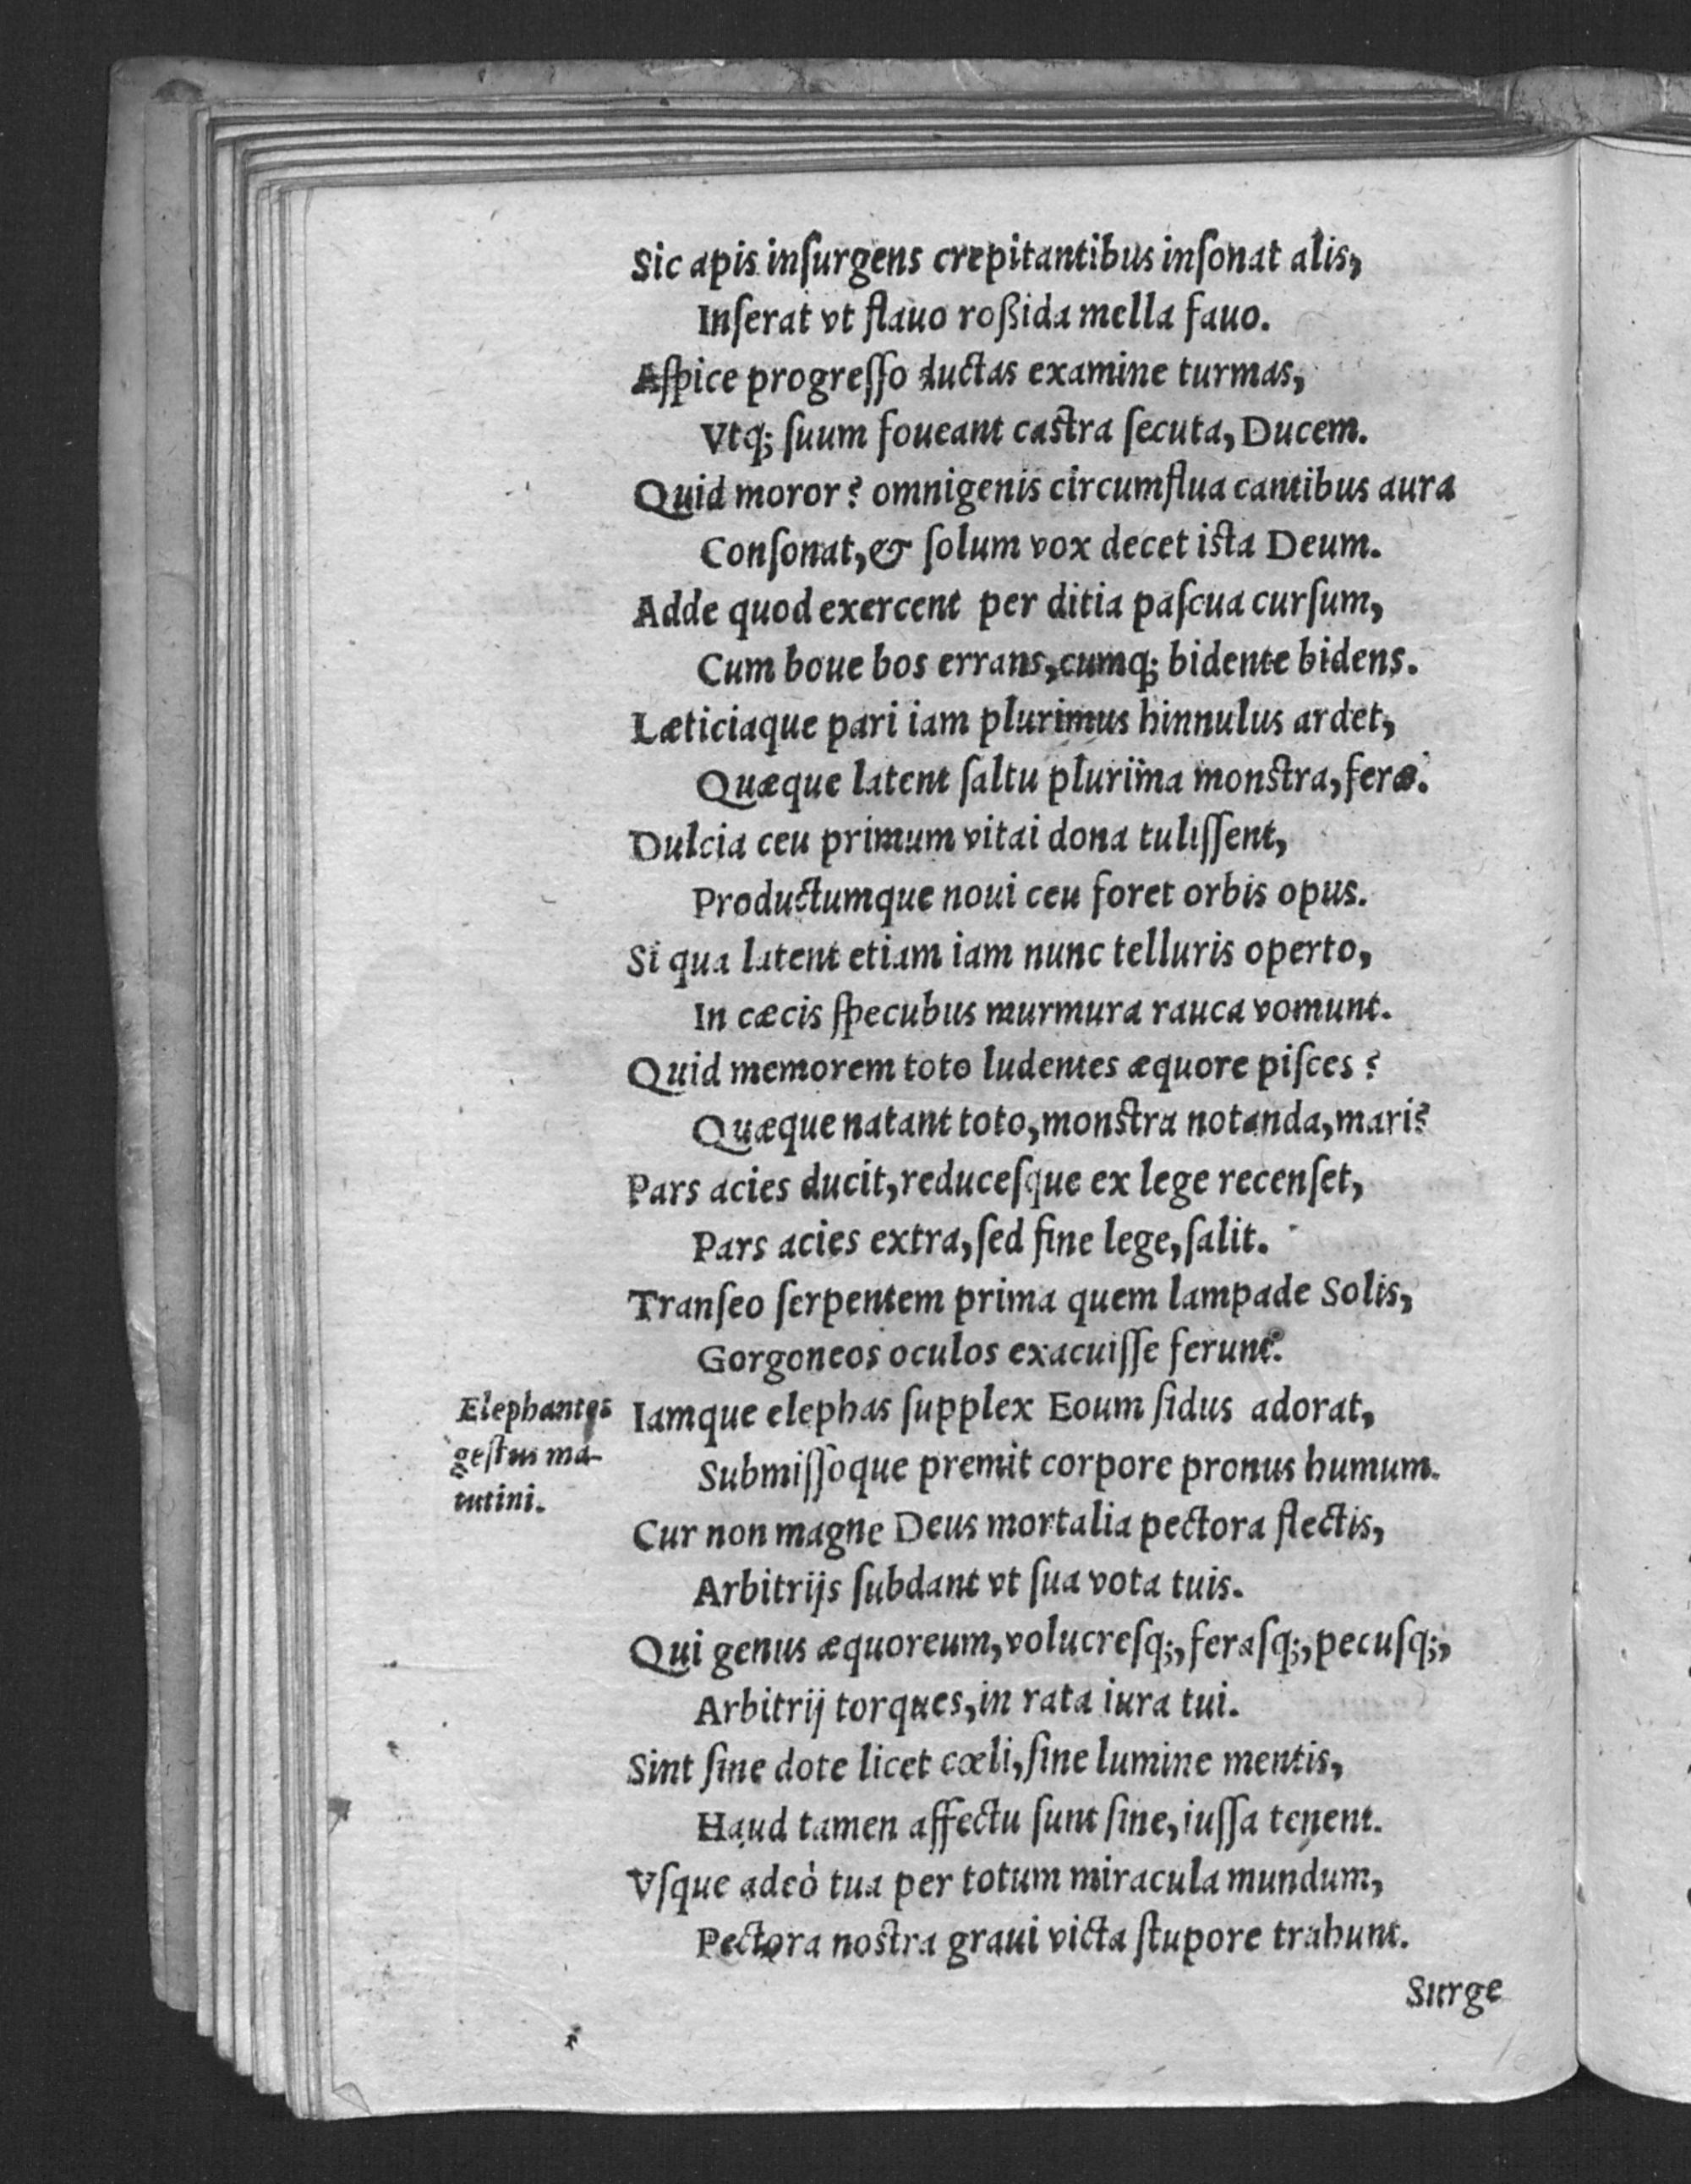 Sic apis inſurgens crepitantibus inſonat alis,
Inſerat vt flauo roßida mella fauo.
Aſpice progreſſo ductas examine turmas,
Vtq; ſuum foueant caſtra ſecuta, Ducem.
Quid moror? omnigenis circumflua cantibus aura
Conſonat, & ſolum vox decet iſta Deum.
Adde quod exercent per ditia paſcua curſum,
Cum boue bos errans, cumq; bidente bidens.
Læticiaque pari iam plurimus hinnulus ardet,
Quæque latent ſaltu plurima monſtra, feræ.
Dulcia ceu primum vitai dona tuliſſent,
Productumque noui ceu foret orbis opus.
Si qua latent etiam iam nunc telluris operto,
In cæcis ſpecubus murmura rauca vomunt.
Quid memorem toto ludentes æquore piſces?
Quæque natant toto, monſtra notanda, mari?
Pars acies ducit, reduceſque ex lege recenſet,
Pars acies extra, ſed ſine lege, ſalit.
Tranſeo ſerpentem prima quem lampade Solis,
Gorgoneos oculos exacuiſſe ferunt.
Elephantes
geſtus ma-
tutini.
Iamque elephas ſupplex Eoum ſidus adorat,
Submiſſoque premit corpore pronus humum.
Cur non magne Deus mortalia pectora flectis,
Arbitrijs ſubdant vt ſua vota tuis.
Qui genus æquoreum, volucreſq;, feraſq;, pecuſq;,
Arbitrij torques, in rata iura tui.
Sint ſine dote licet cœli, ſine lumine mentis,
Haud tamen affectu ſunt ſine, iuſſa tenent.
Vſque adeò tua per totum miracula mundum,
Pectora noſtra graui victa ſtupore trahunt.
Surge